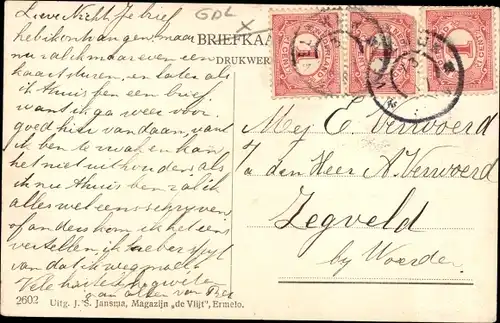 GDL
Lieve Nicht, Je brief
heb ik ontvangen, maar
nu zal ik maar even een
kaart sturen, en later als
ik thuis ben een brief
want ik ga weer voor
goed hier vandaan, want
ik ben te zwak en kan
het niet uithouden, als
ik nu thuis ben zal ik
alles wel eens schrijven,
of anders kom ik het eens
vertellen, ik heb er spijt
van dat ik weg moet
Vele hartelijke groeten
van allen van
BRIEFKAA
DRUKWER
NEDERLAND
1
CENT
1
Mej E. Verwoerd
a/a den Heer A. Verwoerd
Zegveld
by Woerden
2602 Uitg. J. S. Jansma, Magazijn „de Vlijt", Ermelo.